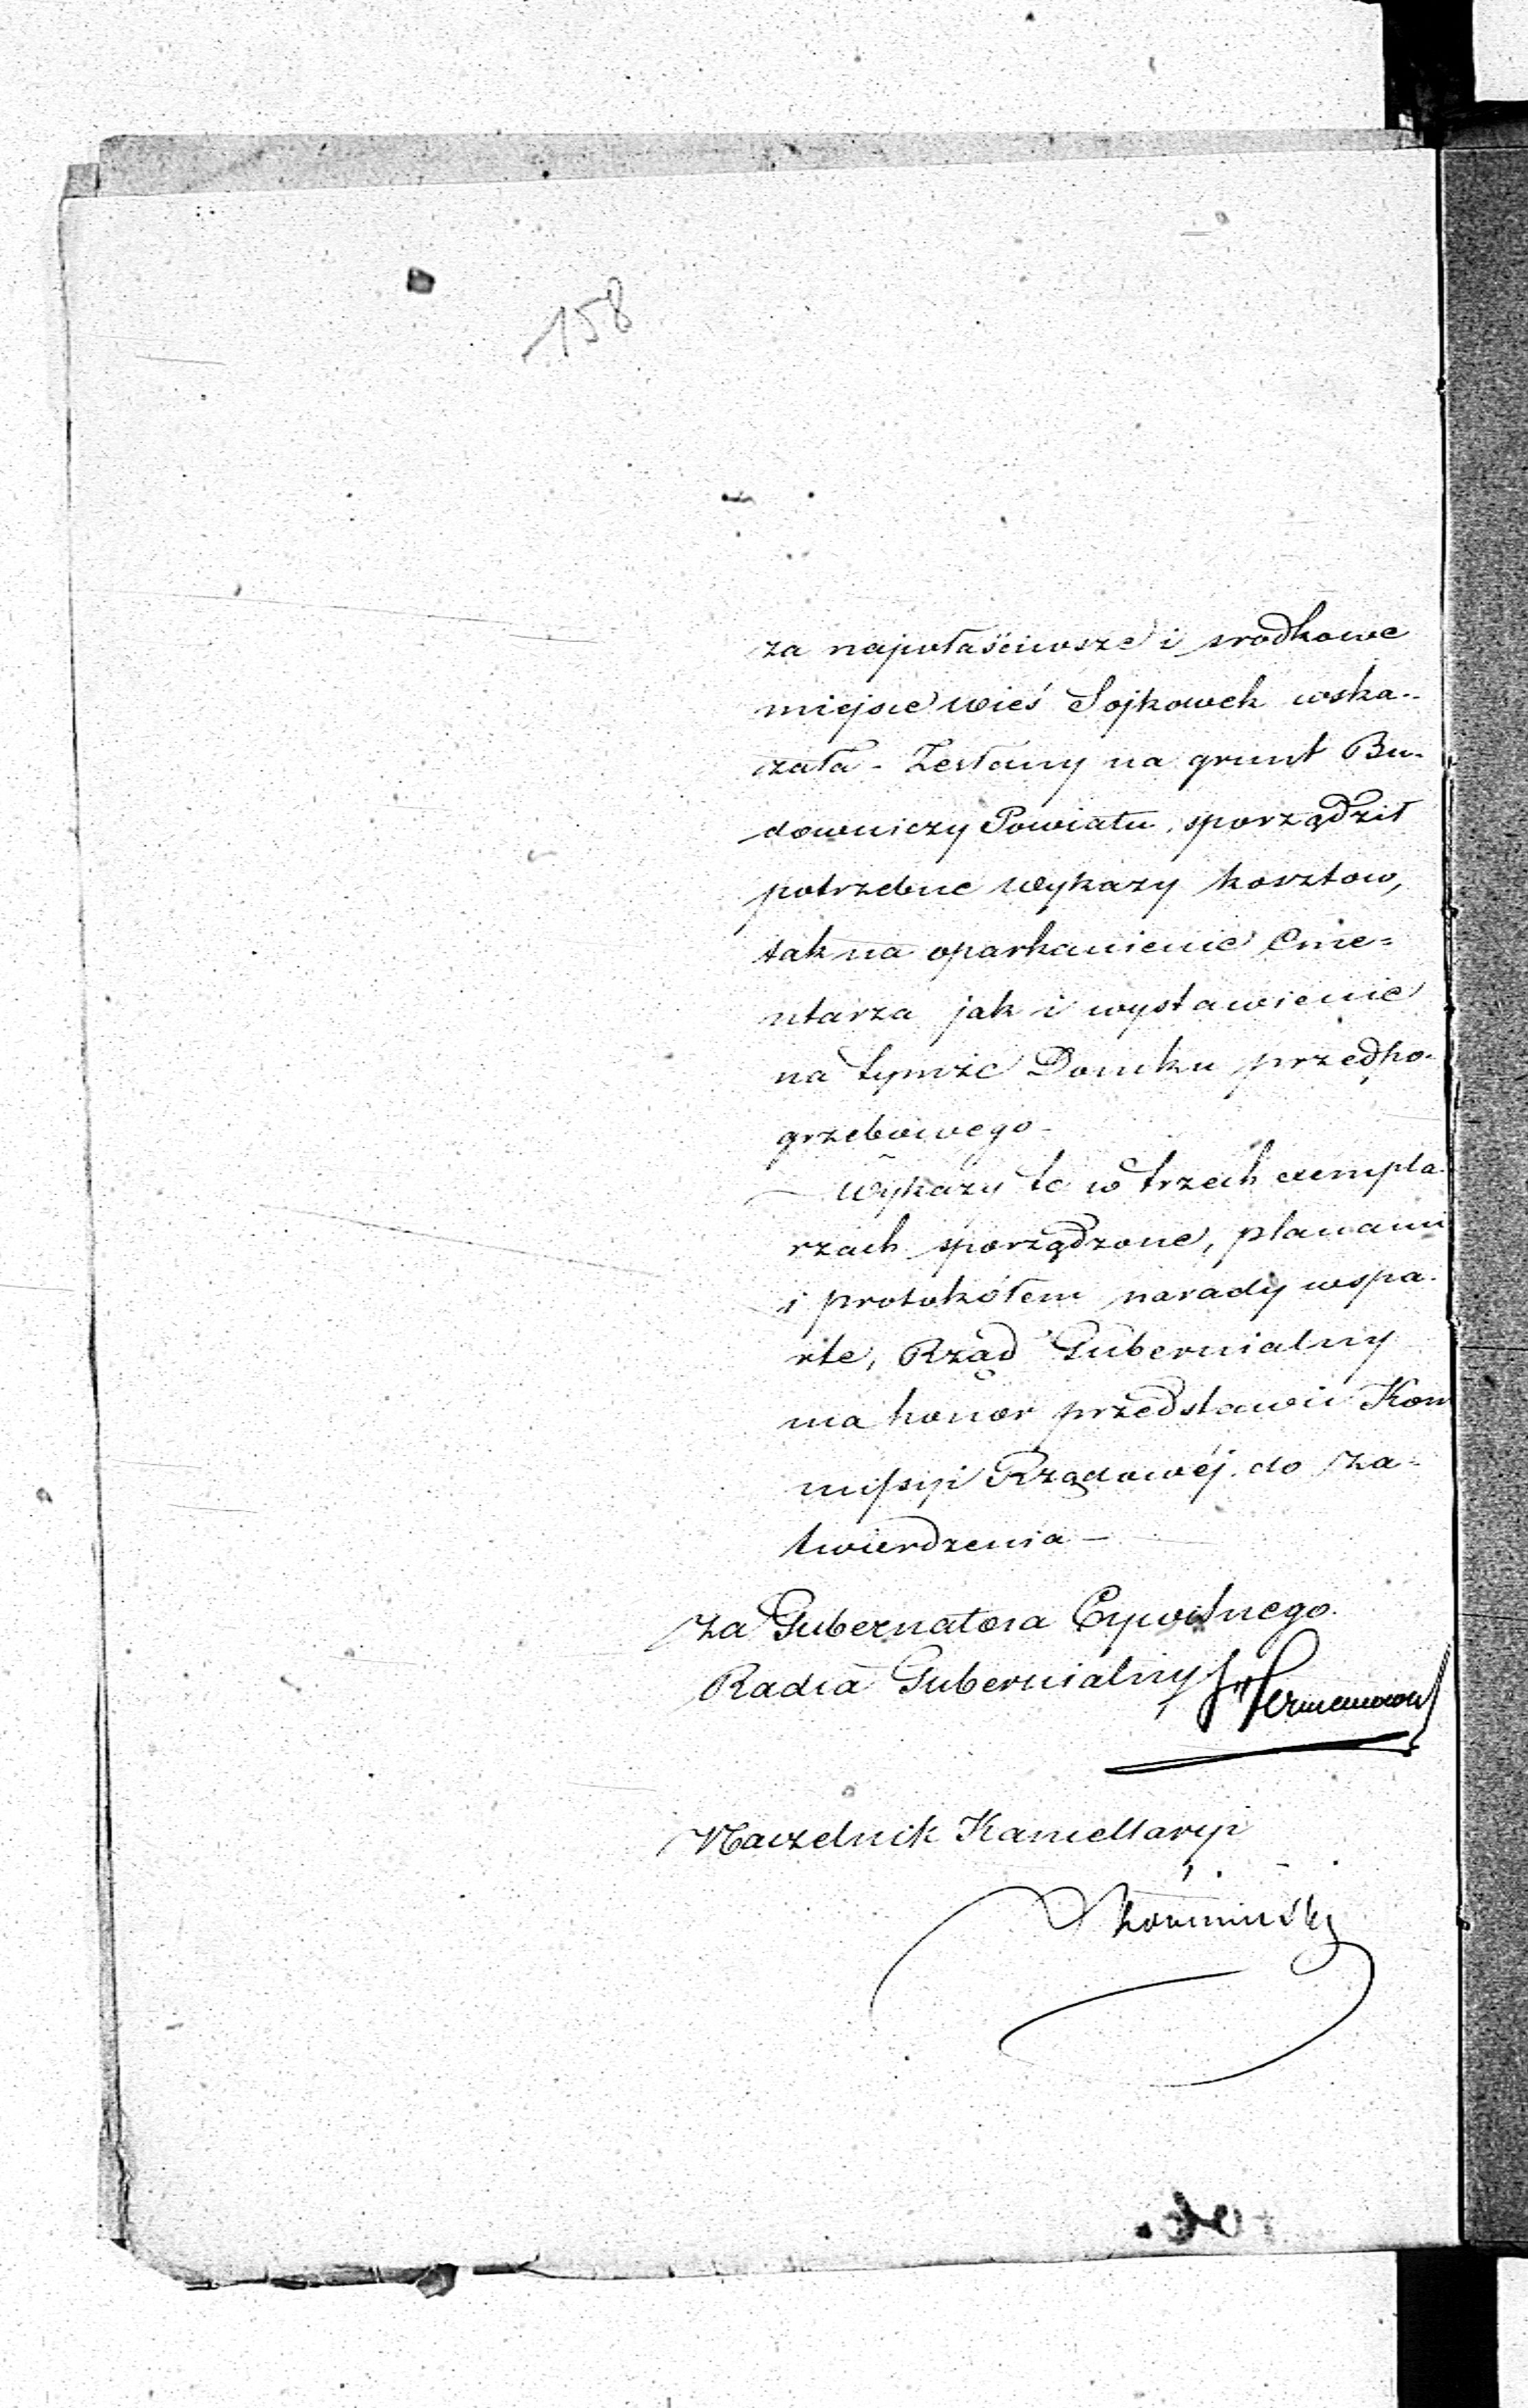 158
za najwłaściwsze i srodkowe
miejsce wieś Sojkowek wska-
zała - Zesłany na grunt Bu-
downiczy Powiatu, sporządził
potrzebne wykazy kosztow,
tak na oparkanienie Cme=
ntarza jak i wystawienie
na tymże Domku przedpo-
grzebowego -
Wykazy te w trzech exempla-
rzach sporządzone, planami
i protokółem narady wspa-
rte, Rząd Gubernialny
ma honor przedstawić Kom
missyi Rządowéj do za-
twierdzenia -
za Gubernatora Cywilnego
Radca Gubernialny
Naczelnik Kancellaryi